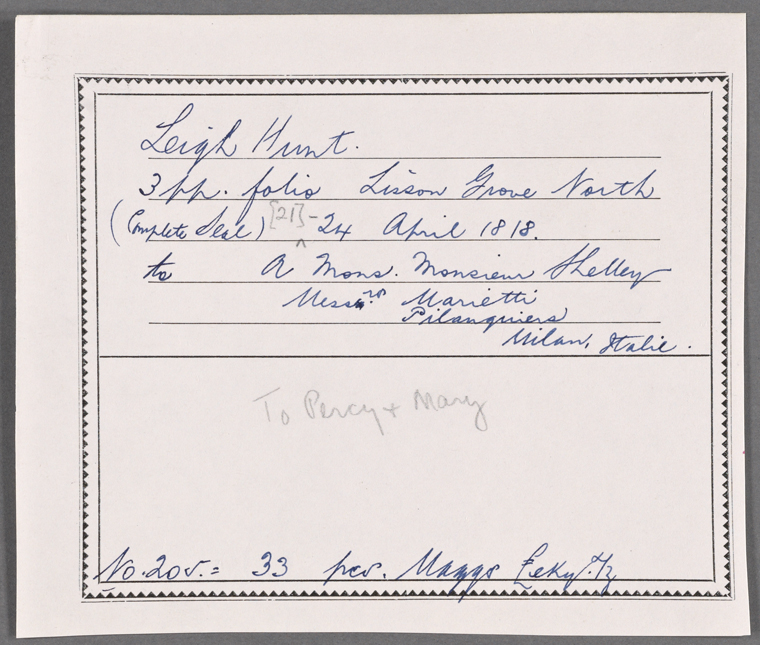 Leigh Hunt.
3 pp. folio Lisson Grove North
(Complete Seal) [21]-24 April 1818.
to A Mons. Monsieur Shelley
Messrs. Marietti
Pilanquiers
Milan, Italie.
To Percy + Mary
No. 33 per. Maggs